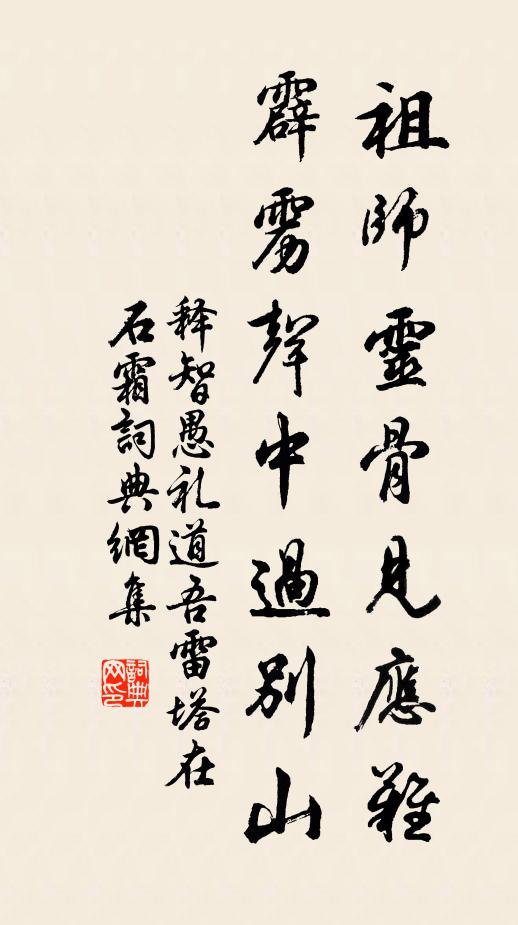 祖師靈骨見應難
霹雳聲中過別山
释智愚礼道吾雷塔在
石霜詞典網集
詞典网印